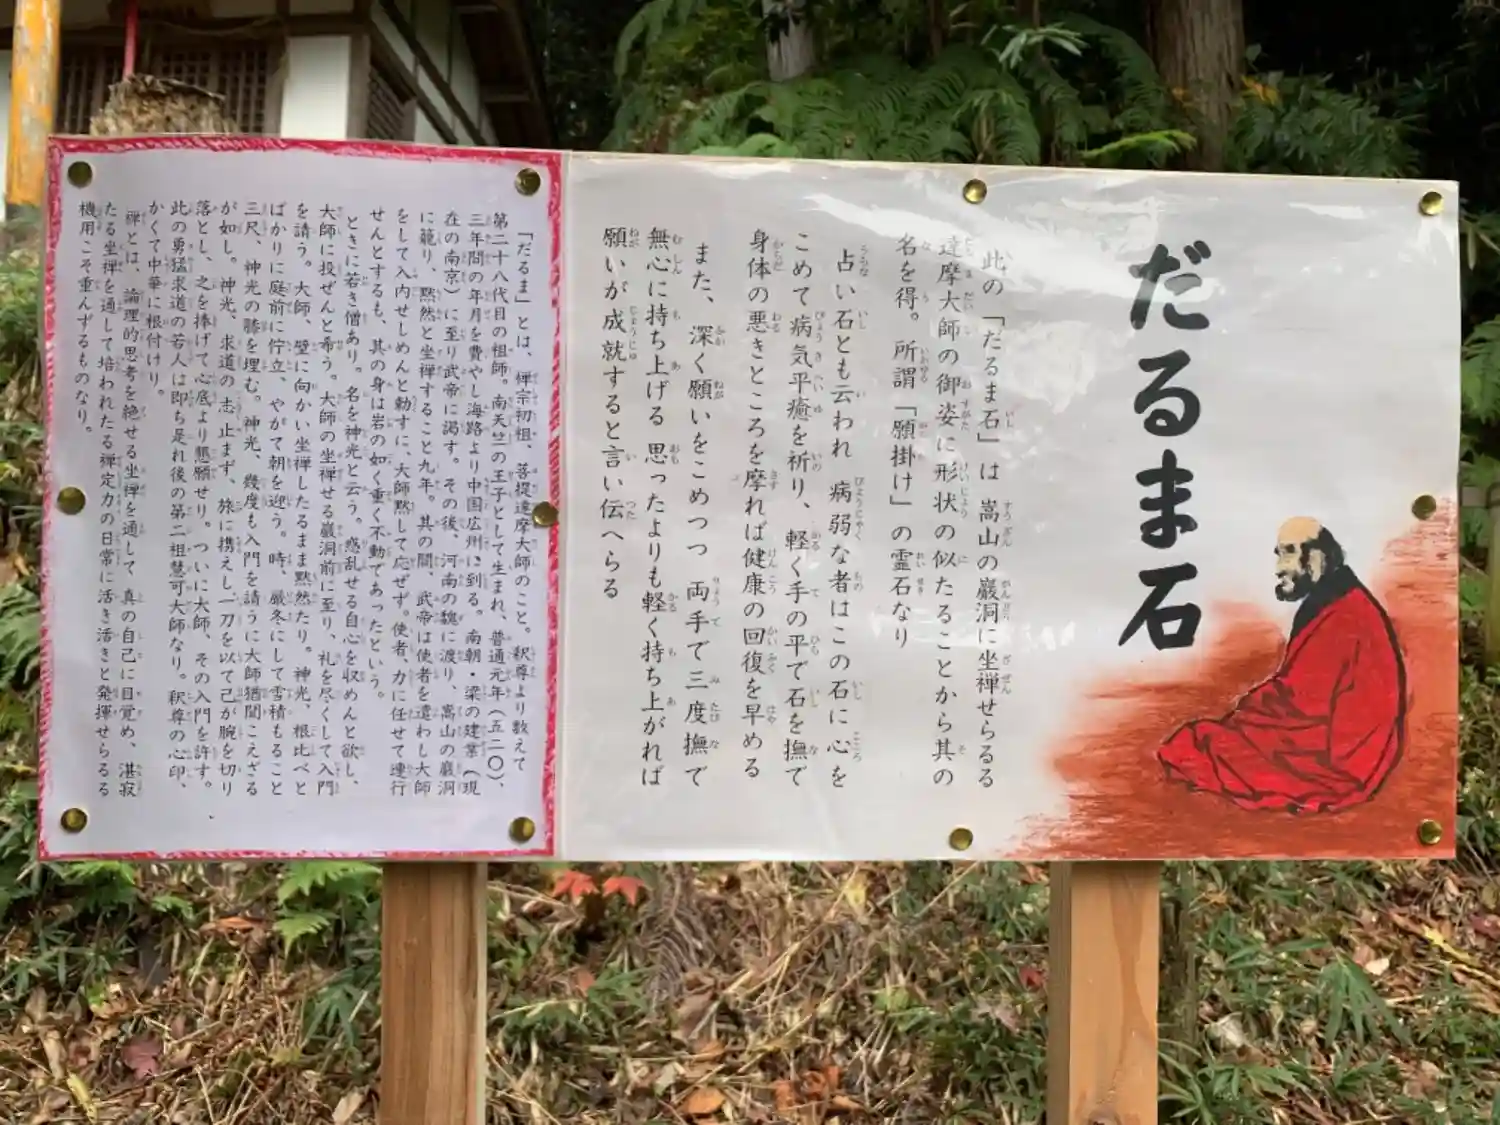 だるま石
此の「だるま石」は 嵩山の巖洞に坐禅せらるる
達摩大師の御姿に形状の似たることから其の
名を得。所謂「願掛け」の霊石なり
占い石とも云われ 病弱な者はこの石に心を
こめて病気平癒を祈り、軽く手の平で石を撫で
身体の悪きところを摩れば健康の回復を早める
また、深く願いをこめつつ 両手で三度撫で
無心に持ち上げる 思ったよりも軽く持ち上がれば
願いが成就すると言い伝へらる
「だるま」とは、禅宗初祖、菩提達摩大師のこと。釈尊より数えて
第二十八代目の祖師。南天竺の王子として生まれ、普通元年(五二〇)、
三年間の年月を費やし海路より中国広州に到る。南朝・梁の建業(現
在の南京)に至り武帝に謁す。その後、河南の魏に渡り、嵩山の巖洞
に籠り、黙然と坐禅すること九年。其の間、武帝は使者を遣わし大師
をして入内せしめんと勅すに、大師黙して応ぜず。使者、力に任せて連行
せんとするも、其の身は岩の如く重く不動であったという。
ときに若き僧あり。名を神光と云う。惑乱せる自心を収めんと欲し、
大師に投ぜんと希う。大師の坐禅せる巖洞前に至り、礼を尽くして入門
を請う。大師、壁に向かい坐禅したるまま黙然たり。神光、根比べと
ばかりに庭前に佇立、やがて朝を迎う。時、厳冬にして雪積もること
三尺、神光の膝を埋む。神光、幾度も入門を請うに大師猶聞こえざる
が如し。神光、求道の志止まず、旅に携えし一刀を以て己が腕を切り
落とし、之を捧げて心底より懇願せり。ついに大師、その入門を許す。
此の勇猛求道の若人は即ち是れ後の第二祖慧可大師なり。釈尊の心印、
かくて中華に根付けり。
禅とは、論理的思考を絶せる坐禅を通して 真の自己に目覚め、湛寂
たる坐禅を通して培われたる禅定力の日常に活き活きと発揮せらるる
機用こそ重んずるものなり。